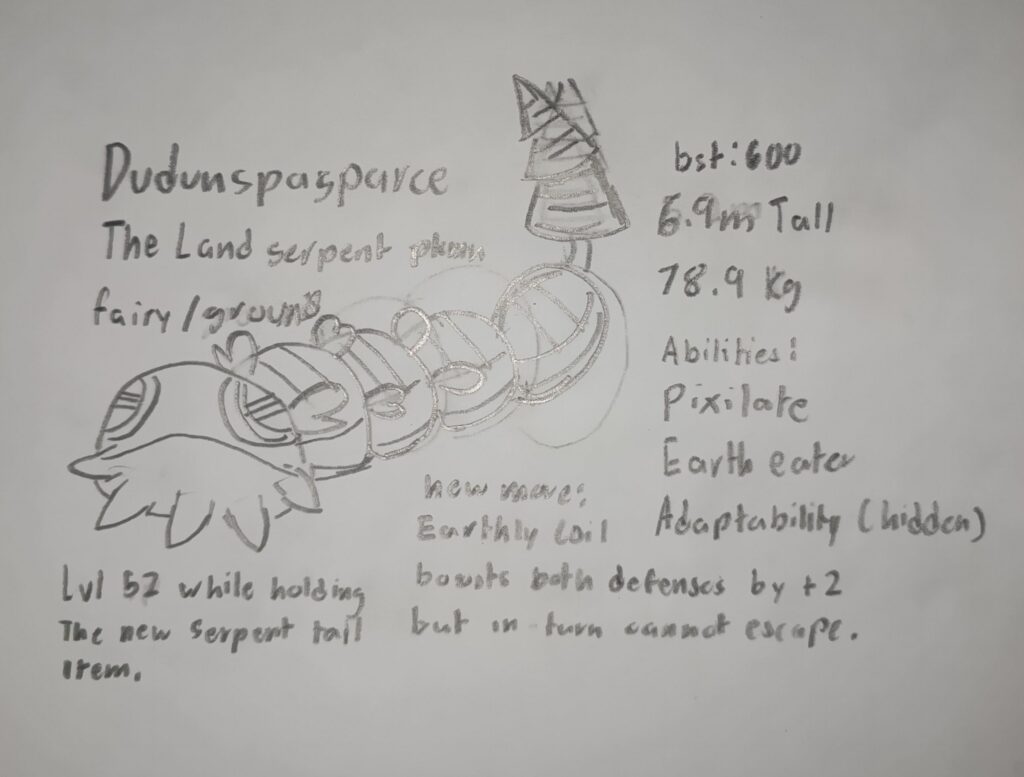 Dudunspasparce
The Land serpent pkmn
fairy/ground
bst:600
6.9m Tall
78.9 kg
Abilities:
Pixilate
Earth eater
Adaptability (hidden)
new move:
Earthly Coil
boosts both defenses by +2
but in turn cannot escape.
Lvl 52 while holding
The new serpent tail
item.